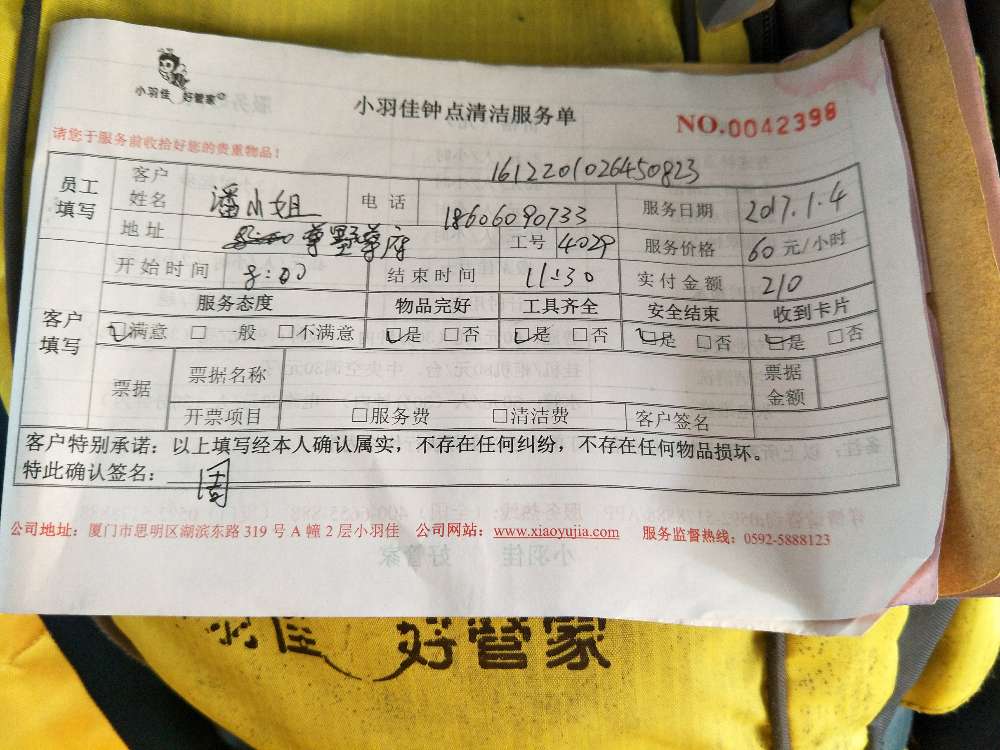 小羽佳 好管家
小羽佳钟点清洁服务单
NO.0042398
请您于服务前收拾好您的贵重物品!
1612201026450823
员工填写 客户姓名 潘小姐 电话 18606090733 服务日期 2017.1.4
地址 尊墅尊府 工号 4029 服务价格 60元/小时
开始时间 8:00 结束时间 11:30 实付金额 210
客户填写 服务态度 物品完好 工具齐全 安全结束 收到卡片
☑满意 □一般 □不满意 ☑是 □否 ☑是 □否 ☑是 □否 ☑是 □否
票据 票据名称 票据金额
开票项目 □服务费 □清洁费 客户签名
客户特别承诺：以上填写经本人确认属实，不存在任何纠纷，不存在任何物品损坏。
特此确认签名：周
公司地址：厦门市思明区湖滨东路 319 号 A 幢 2 层小羽佳 公司网站：www.xiaoyujia.com 服务监督热线：0592-5888123
羽佳 好管家